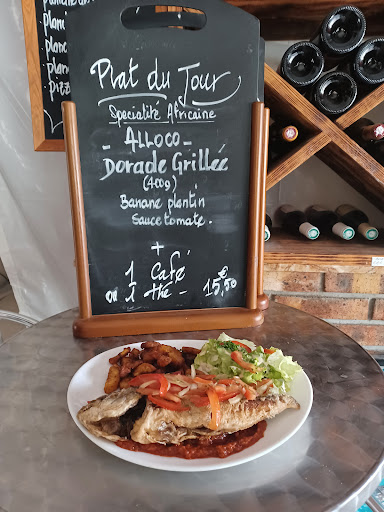 plan
plan
plan
Pizz
Plat du Jour
Spécialité Africaine
- Alloco -
Dorade Grillée
(400g)
Banane plantin
Sauce tomate.
+
1 Café
ou 1 thé - 15,50 €